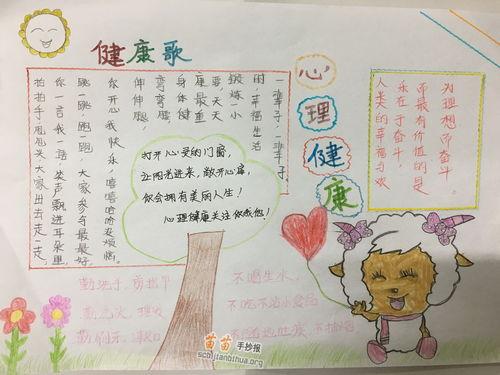 健康歌
心理健康
一辈子,一辈子,
困一幸福生活
锻炼一小
要,天天
康最重
身体健
弯弯腰,
伸伸腿,
你开心我快乐,嘻嘻哈哈没烦恼。
跳一跳跑一跑,大家参与最最好。
你一言我一语笑声飘进耳朵里。
拍拍手甩甩头大家出去走一走。
打开心灵的门窗,
让阳光进来,敞开心扉,
你会拥有美丽人生!
心理健康关注你我他!
为理想而奋斗。
而最有价值的是
永在于奋斗,
人类的幸福与欢
勤洗手,剪指甲
勤洗衣,理发
勤刷牙,漱口
不喝生水,
不吃不洁小食品
不随地吐痰,不扔
苗苗手抄报
scbijianbihua.org